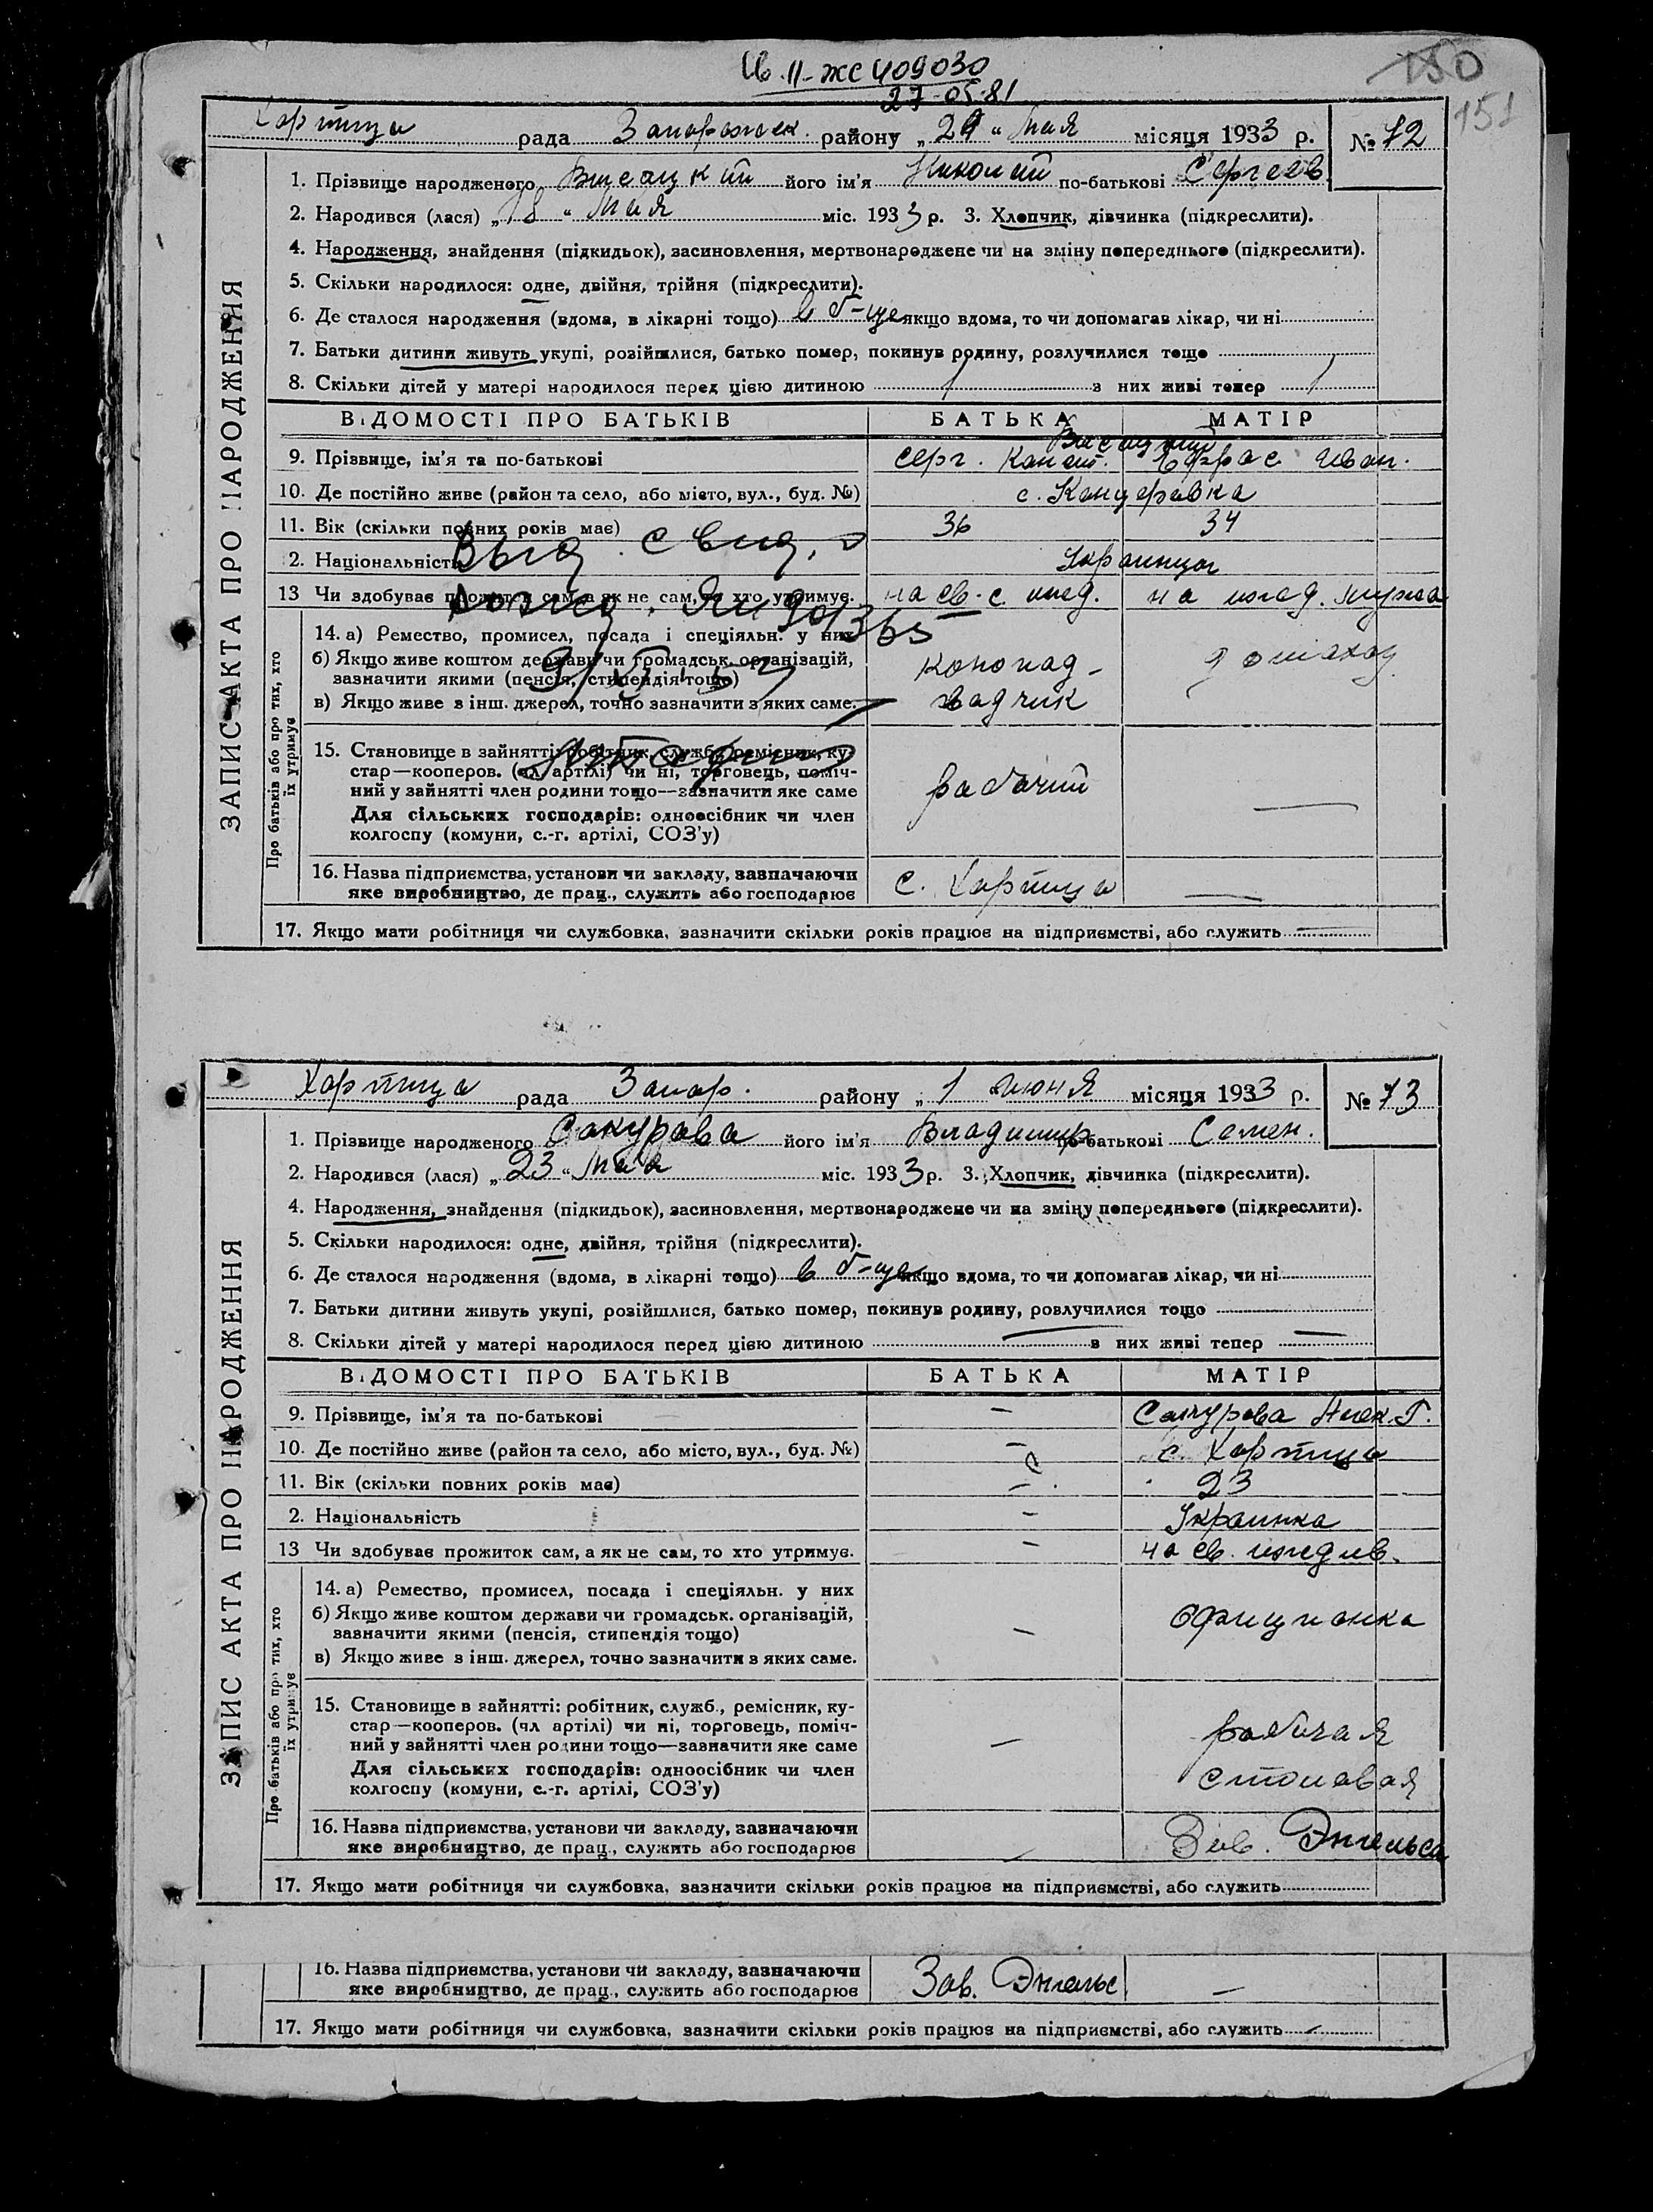 Св. II-ЖС 409030
27-05-81
150
151
Хортица рада Запорожск. району „29" Мая місяця 1933 р. № 72
1. Прізвище народженого Высоцкий його ім'я Николай по-батькові Сергеев.
2. Народився (лася) „18" Мая міс. 1933 р. 3. Хлопчик, дівчинка (підкреслити).
4. Народження, знайдення (підкидьок), засиновлення, мертвонароджене чи на зміну попереднього (підкреслити).
5. Скільки народилося: одне, двійня, трійня (підкреслити).
6. Де сталося народження (вдома, в лікарні тощо) в б-це якщо вдома, то чи допомагав лікар, чи ні
7. Батьки дитини живуть укупі, розійшлися, батько помер, покинув родину, розлучилися тощо
8. Скільки дітей у матері народилося перед цією дитиною 1 з них живі тепер 1
ЗАПИС АКТА ПРО НАРОДЖЕННЯ
ВІДОМОСТІ ПРО БАТЬКІВ БАТЬКА МАТІР
9. Прізвище, ім'я та по-батькові Серг. Иван.
10. Де постійно живе (район та село, або місто, вул., буд. №) с. Канцеровка
11. Вік (скільки повних років має) 36 34
2. Національність Украинцы
13 Чи здобуває прожиток сам, а як не сам, то хто утримує. на св. с. ижд. на ижд. мужа
Про батьків або про тих, хто їх утримує
14. а) Ремество, промисел, посада і спеціяльн. у них
б) Якщо живе коштом держави чи громадськ. організацій,
зазначити якими (пенсія, стипендія тощо)
в) Якщо живе з інш. джерел, точно зазначити з яких саме.
домохоз.
Выд. свид. о
рожд.
15. Становище в зайнятті: робітник, служб., ремісник, ку-
стар—кооперов. (чл артілі) чи ні, торговець, поміч-
ний у зайнятті член родини тощо—зазначити яке саме
Для сільських господарів: одноосібник чи член
колгоспу (комуни, с.-г. артілі, СОЗ'у)
рабочий —
16. Назва підприємства, установи чи закладу, зазначаючи
яке виробництво, де прац., служить або господарює с. Хортица —
17. Якщо мати робітниця чи службовка, зазначити скільки років працює на підприємстві, або служить —
Хортица рада Запор. району „1 июня місяця 1933 р. № 73
1. Прізвище народженого Сакурова його ім'я Владимир по-батькові Семен.
2. Народився (лася) „23" Мая міс. 1933 р. 3. Хлопчик, дівчинка (підкреслити).
4. Народження, знайдення (підкидьок), засиновлення, мертвонароджене чи на зміну попереднього (підкреслити).
5. Скільки народилося: одне, двійня, трійня (підкреслити).
6. Де сталося народження (вдома, в лікарні тощо) в б-це якщо вдома, то чи допомагав лікар, чи ні
7. Батьки дитини живуть укупі, розійшлися, батько помер, покинув родину, розлучилися тощо
8. Скільки дітей у матері народилося перед цією дитиною — з них живі тепер —
ЗАПИС АКТА ПРО НАРОДЖЕННЯ
ВІДОМОСТІ ПРО БАТЬКІВ БАТЬКА МАТІР
9. Прізвище, ім'я та по-батькові — Сакурова Алек. Г.
10. Де постійно живе (район та село, або місто, вул., буд. №) — с. Хортица
11. Вік (скільки повних років має) — 23
2. Національність — Украинка
13 Чи здобуває прожиток сам, а як не сам, то хто утримує. — на св. иждив.
Про батьків або про тих, хто їх утримує
14. а) Ремество, промисел, посада і спеціяльн. у них
б) Якщо живе коштом держави чи громадськ. організацій,
зазначити якими (пенсія, стипендія тощо)
в) Якщо живе з інш. джерел, точно зазначити з яких саме.
— официантка
15. Становище в зайнятті: робітник, служб., ремісник, ку-
стар—кооперов. (чл артілі) чи ні, торговець, поміч-
ний у зайнятті член родини тощо—зазначити яке саме
Для сільських господарів: одноосібник чи член
колгоспу (комуни, с.-г. артілі, СОЗ'у)
— рабочая
столовая
16. Назва підприємства, установи чи закладу, зазначаючи
яке виробництво, де прац., служить або господарює — Зав. Энгельса
17. Якщо мати робітниця чи службовка, зазначити скільки років працює на підприємстві, або служить
16. Назва підприємства, установи чи закладу, зазначаючи
яке виробництво, де прац., служить або господарює Зав. Энгельс —
17. Якщо мати робітниця чи службовка, зазначити скільки років працює на підприємстві, або служить —